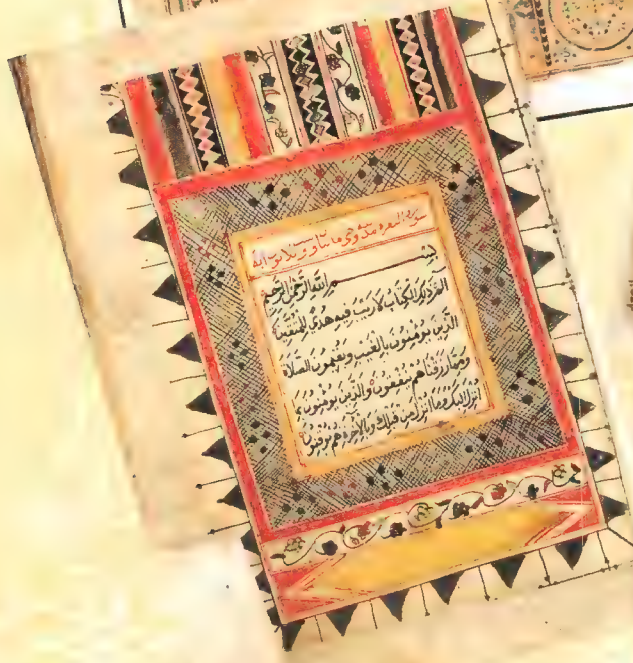 سورة البقره وهي اية
بِسْمِ اللهِ الرَّحْمٰنِ الرَّحِيمِ
الم ذَلِكَ الْكِتَابُ لَا رَيْبَ فِيهِ هُدًى لِلْمُتَّقِينَ
الَّذِينَ يُوْمِنُونَ بِالْغَيْبِ وَيُقِيمُونَ الصَّلَاةَ
وَمِمَّا رَزَقْنَاهُمْ يُنْفِقُونَ وَالَّذِينَ يُوْمِنُونَ
اُنْزِلَ اِلَيْكَ وَمَا اُنْزِلَ مِنْ قَبْلِكَ وَبِالْآخِرَةِ هُمْ يُوقِنُونَ